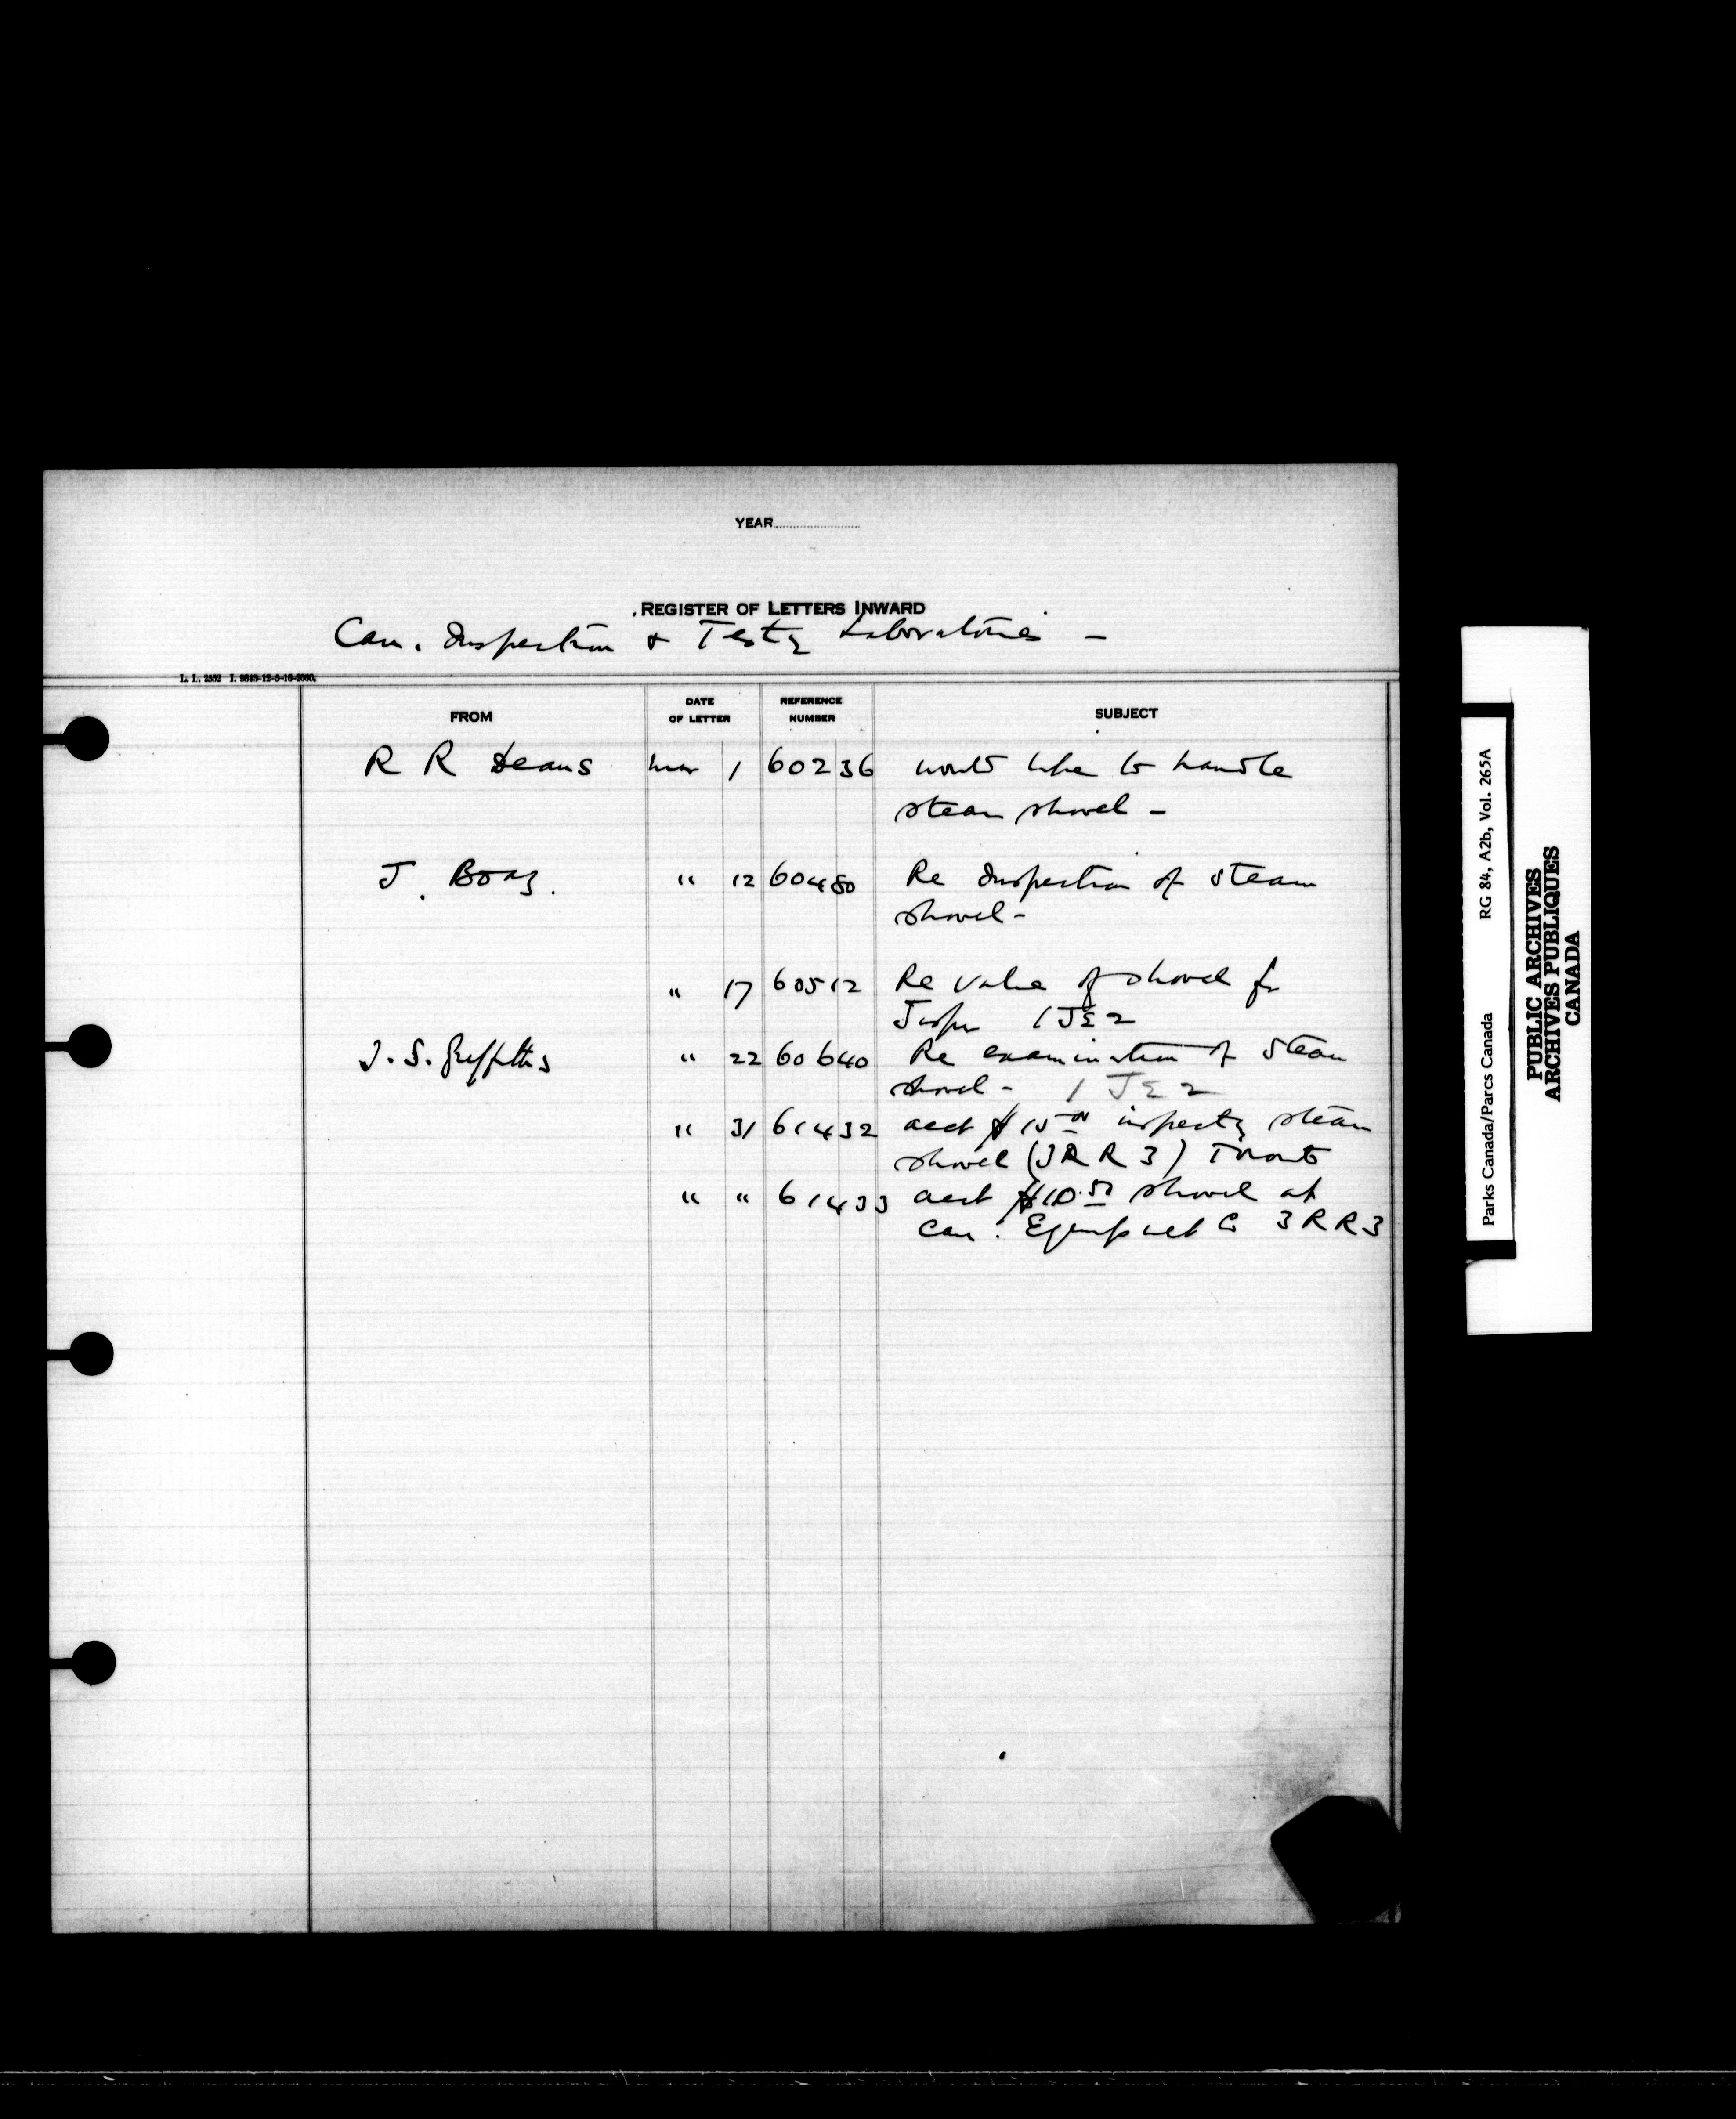 YEAR
REGISTER OF LETTERS INWARD
Can. Inspection & Testg Laboratories -
L. I. 2552 I. 9643-12-5-16-2000.
FROM DATE OF LETTER REFERENCE NUMBER SUBJECT
R R Deans Mar 1 60236 would like to handle
steam shovel -
J. Boaz. " 12 60480 Re Inspection of steam
shovel -
" 17 60512 Re value of shovel for
Jasper 1JE2
J. S. Griffiths " 22 60640 Re examination of steam
shovel - 1JE2
" 31 61432 acct $15.00 inspectg steam
shovel (JRR3) Toronto
" " 61433 acct $10.50 shovel at
Can. Equipmet Co 3RR3
Parks Canada/Parcs Canada RG 84, A2b, Vol. 265A
PUBLIC ARCHIVES
ARCHIVES PUBLIQUES
CANADA